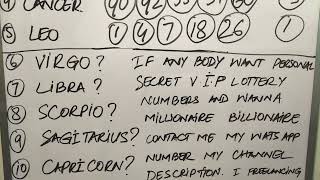 ④ CANCER 90 92
⑤ LEO 1 4 7 18 26 1
⑥ VIRGO? IF ANY BODY WANT PERSONAL
⑦ LIBRA? SECRET V.I.P LOTTERY
⑧ SCORPIO? NUMBERS AND WANNA
MILLIONAIRE BILLIONAIRE
⑨ SAGITARIUS? CONTACT ME MY WATSAPP
⑩ CAPRICORN? NUMBER MY CHANNEL
DESCRIPTION. I FREELANCING